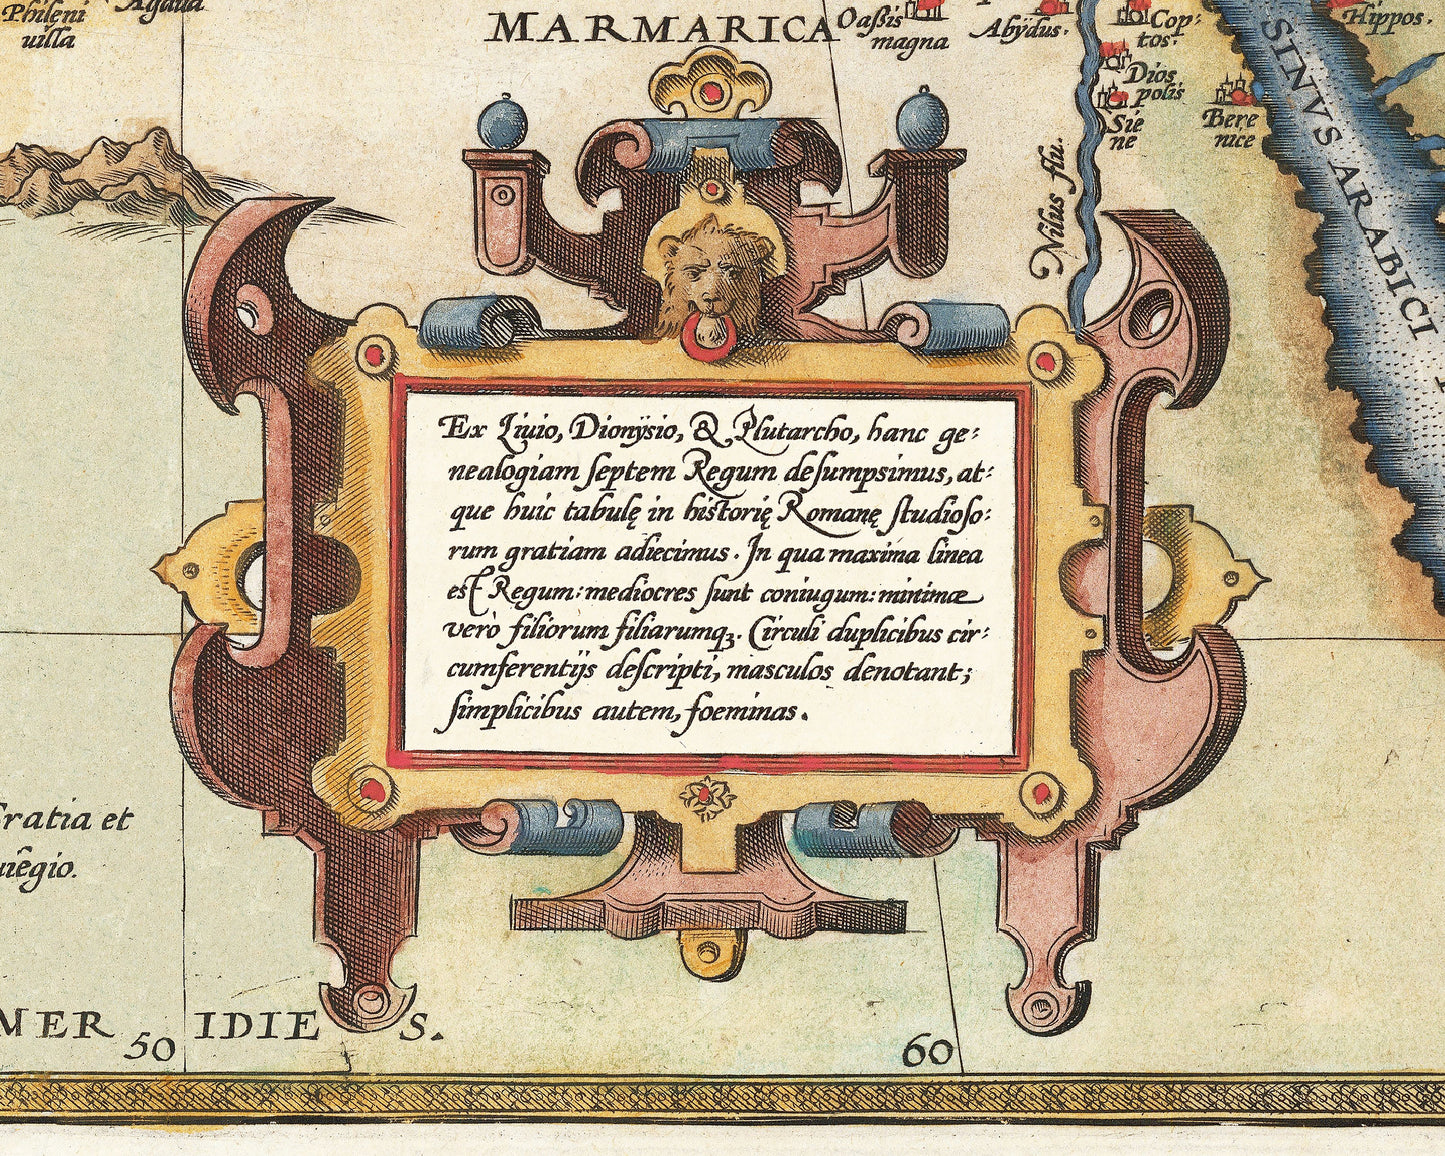 Phileni
uilla
Agdua
MARMARICA
Oaßis
magna
Abÿdus.
Cop¬
tos.
Hippos.
Dios
polis
Sie
ne
Bere
nice
SINVS ARABICI
Nilus flu.
Ex Liuio, Dionÿsio, & Plutarcho, hanc ge:
nealogiam septem Regum desumpsimus, at:
que huic tabulę in historię Romanę studioso:
rum gratiam adiecimus. In qua maxima linea
est Regum: mediocres sunt coniugum: minimæ
verò filiorum filiarumqꝫ. Circuli duplicibus cir:
cumferentijs descripti, masculos denotant;
simplicibus autem, foeminas.
ratia et
uiêgio.
MERIDIES.
50
60